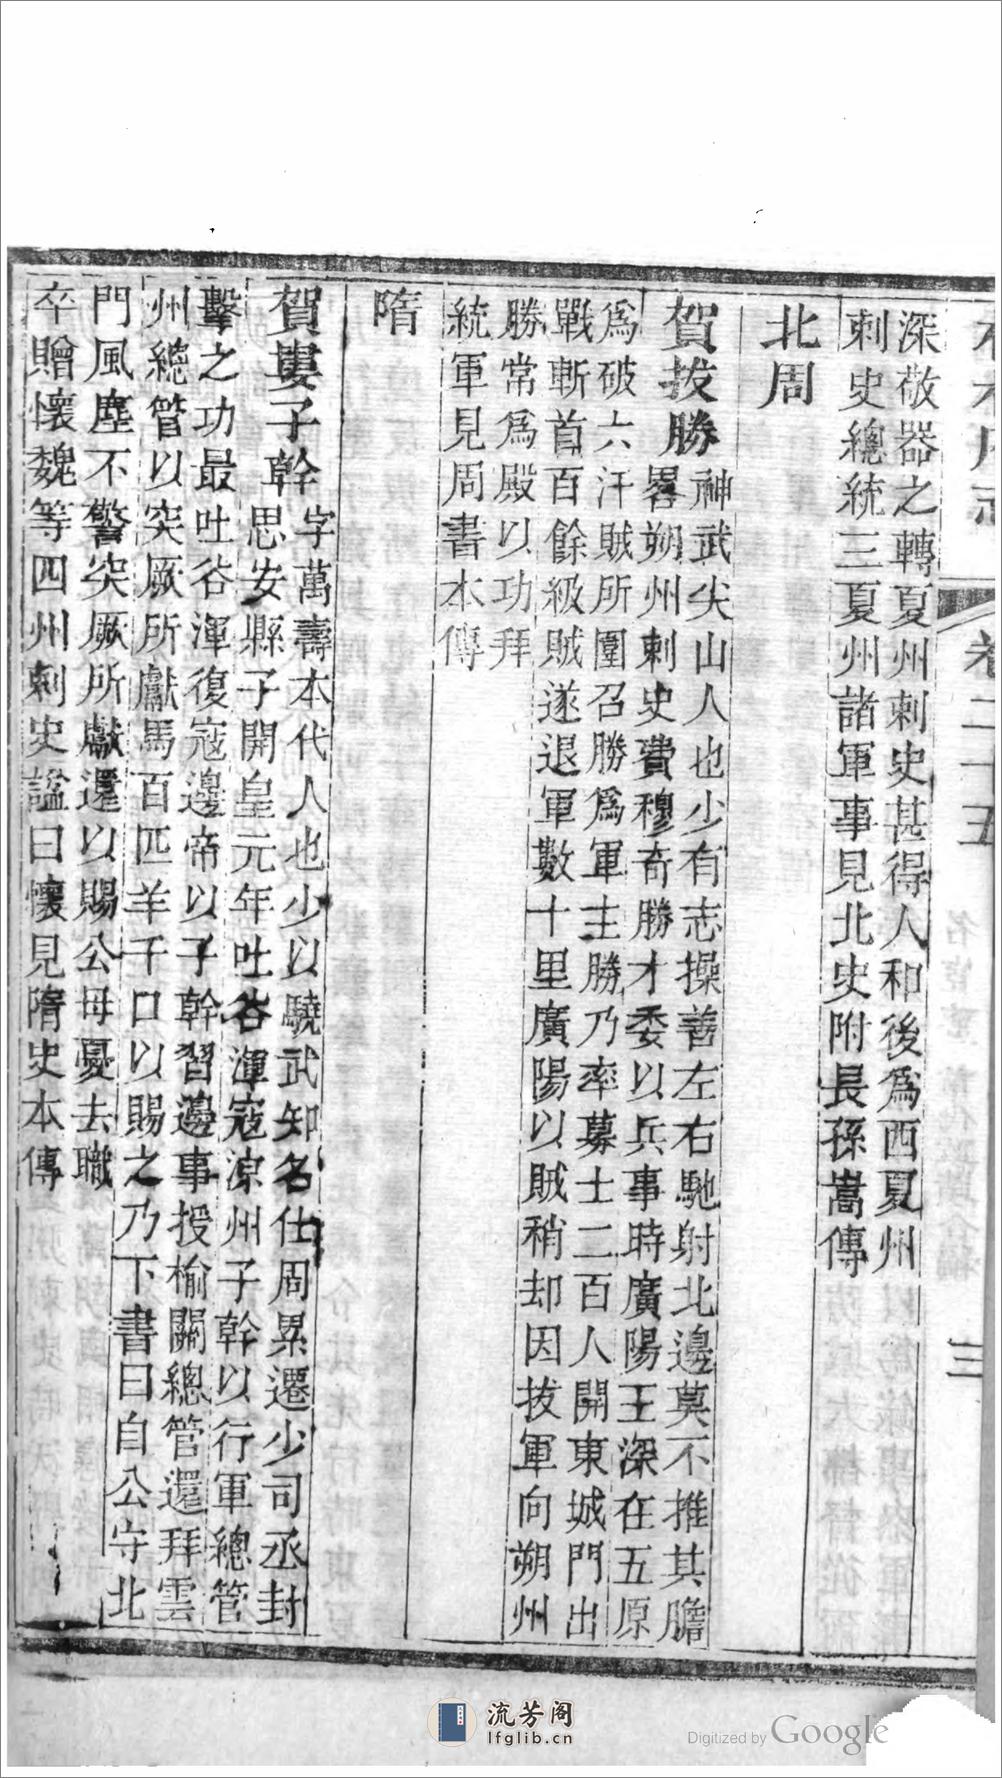 卷二十五
名宦
三
深敬器之轉夏州刺史甚得人和後爲西夏州
刺史總統三夏州諸軍事見北史附長孫嵩傳
北周
賀拔勝神武尖山人也少有志操善左右馳射北邊莫不推其膽
畧朔州刺史費穆奇勝才委以兵事時廣陽王深在五原
爲破六汗賊所圍召勝爲軍主勝乃率募士二百人開東城門出
戰斬首百餘級賊遂退軍數十里廣陽以賊稍却因拔軍向朔州
勝常爲殿以功拜
統軍見周書本傳
隋
賀婁子幹字萬壽本代人也少以驍武知名仕周累遷少司丞封
思安縣子開皇元年吐谷渾寇涼州子幹以行軍總管
擊之功最吐谷渾復寇邊帝以子幹習邊事授榆關總管還拜雲
州總管以突厥所獻馬百匹羊千口以賜之乃下書曰自公守北
門風塵不警突厥所獻還以賜公母憂去職
卒贈懷魏等四州刺史諡曰懷見隋史本傳
流芳阁
lfglib.cn
Digitized by Google